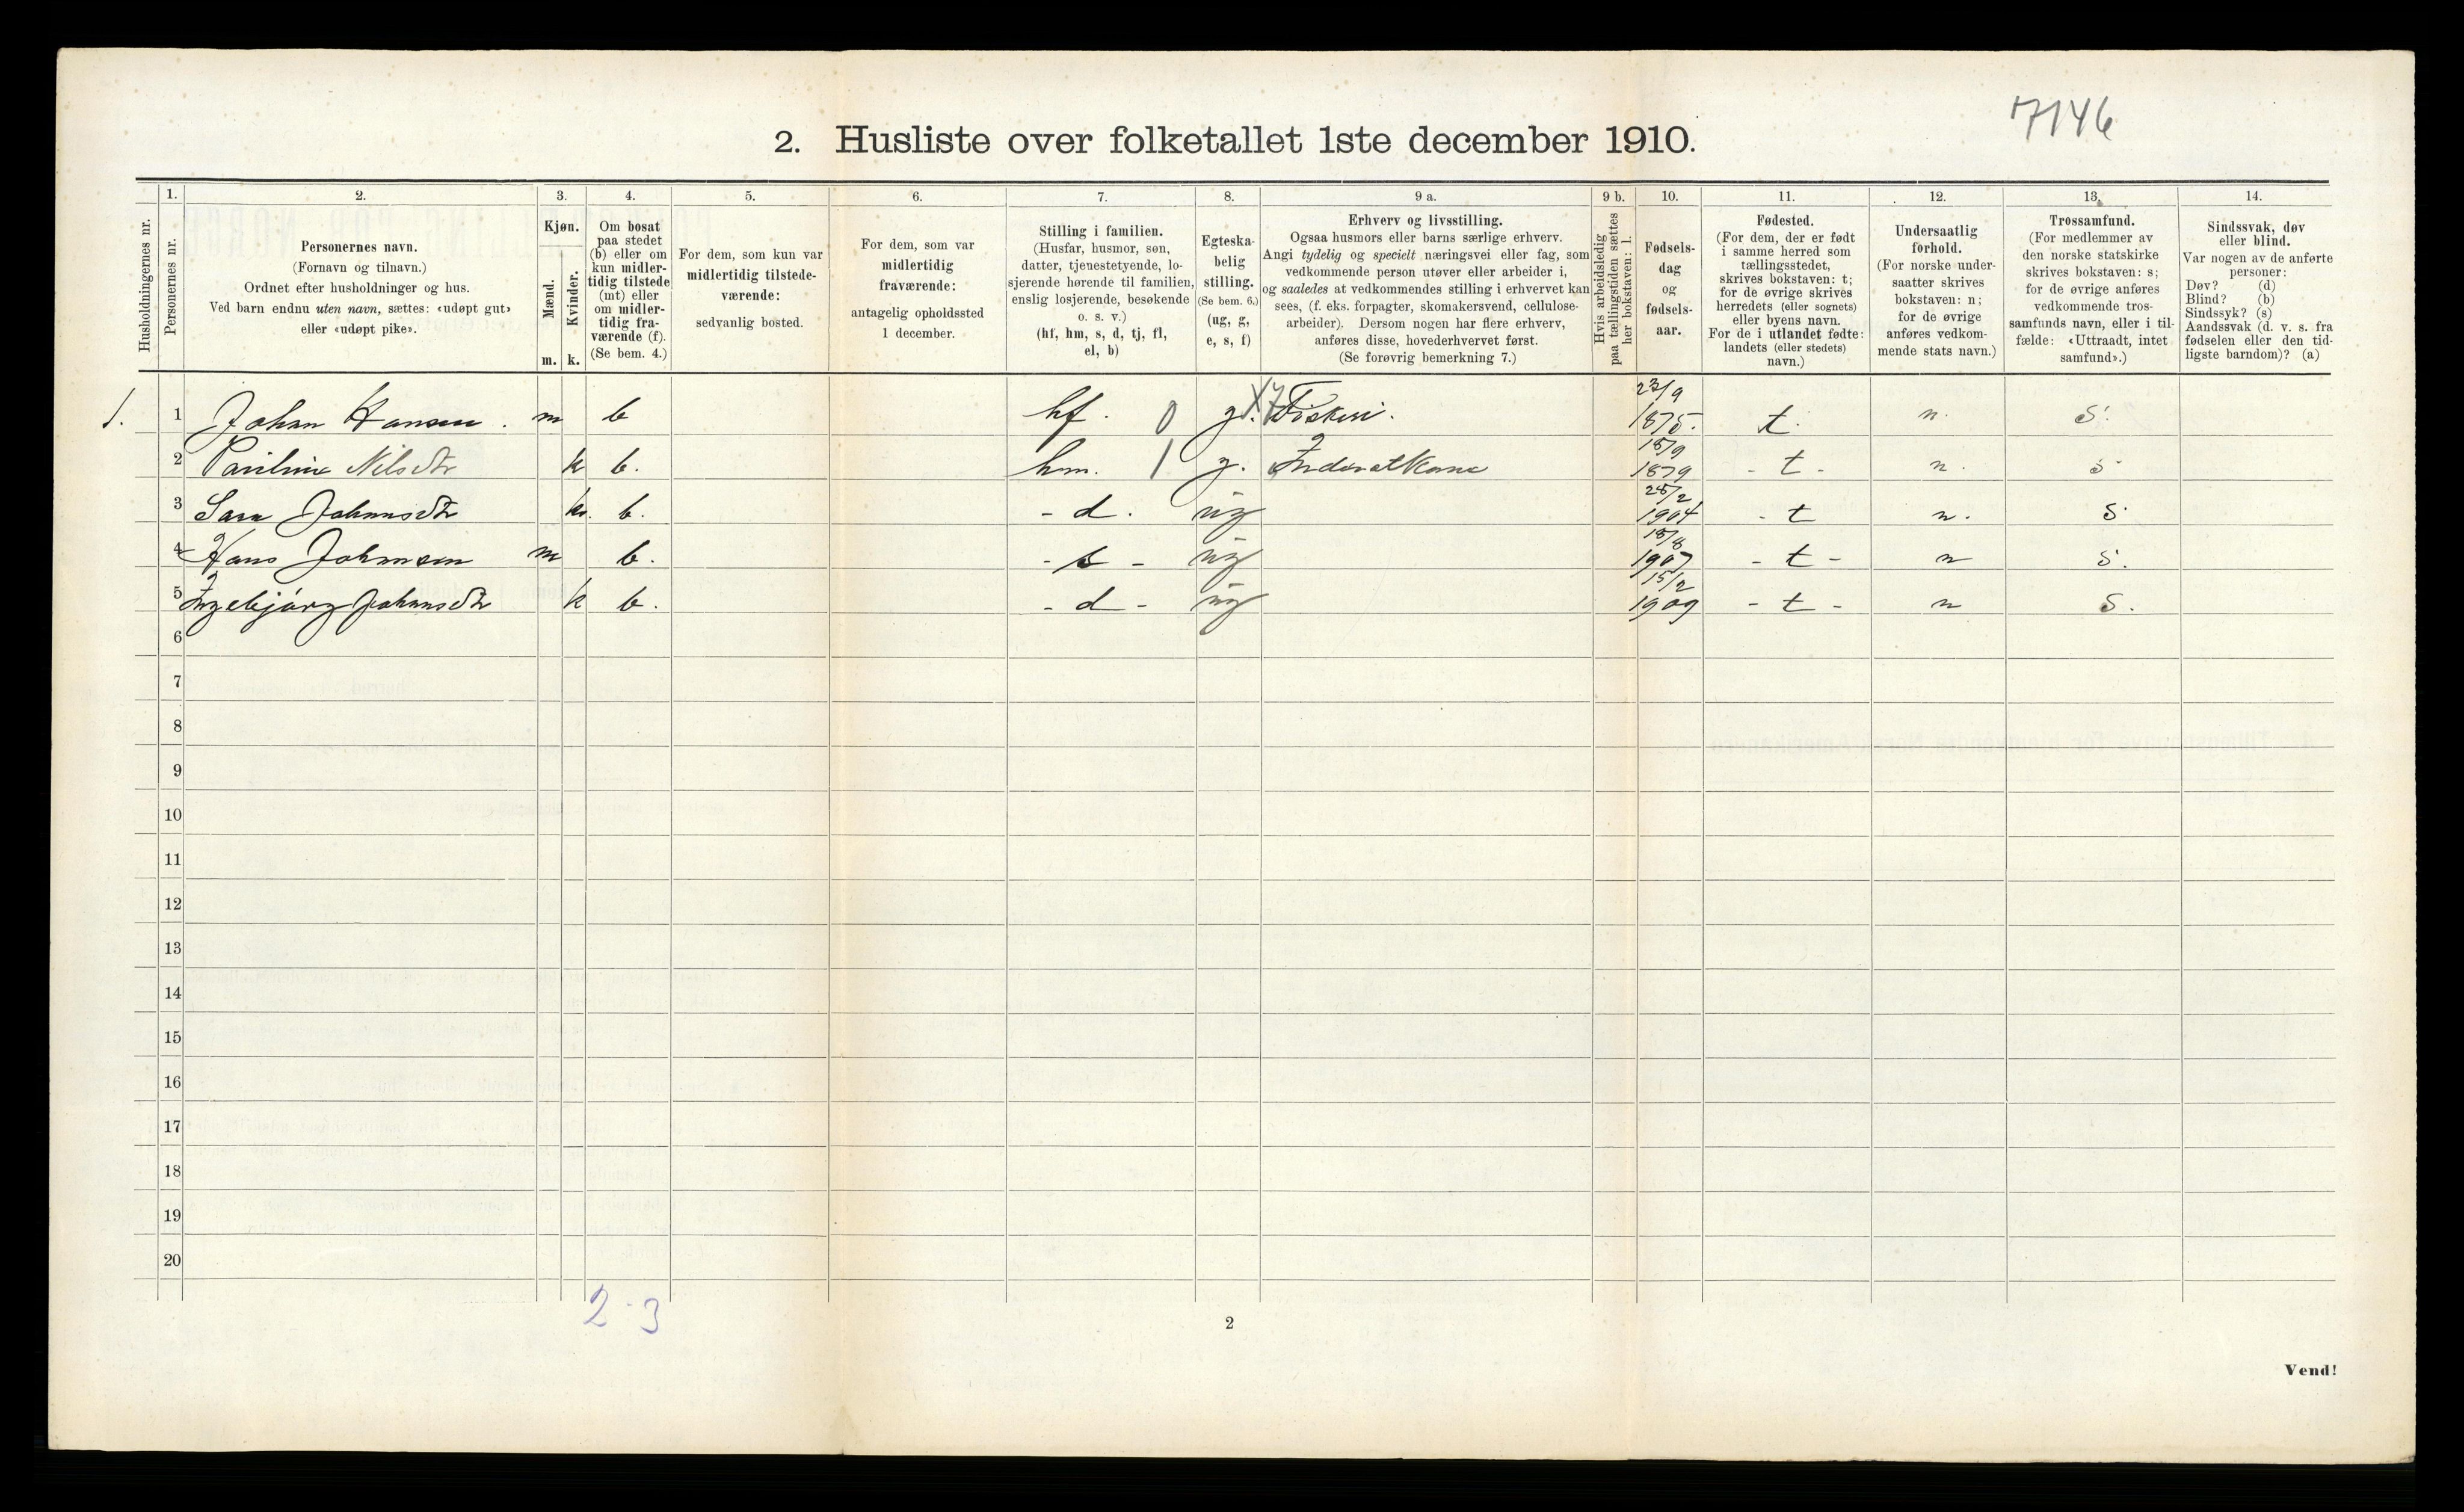 7146
2. Husliste over folketallet 1ste december 1910.
Husholdningernes nr.
1.
Personernes nr.
2.
Personernes navn.
(Fornavn og tilnavn.)
Ordnet efter husholdninger og hus.
Ved barn endnu uten navn, sættes: «udøpt gut»
eller «udøpt pike».
3.
Kjøn.
Mænd.
Kvinder.
m. k.
4.
Om bosat
paa stedet
(b) eller om
kun midler-
tidig tilstede
(mt) eller
om midler-
tidig fra-
værende (f).
(Se bem. 4.)
5.
For dem, som kun var
midlertidig tilstede-
værende:
sedvanlig bosted.
6.
For dem, som var
midlertidig
fraværende:
antagelig opholdssted
1 december.
7.
Stilling i familien.
(Husfar, husmor, søn,
datter, tjenestetyende, lo-
sjerende hørende til familien,
enslig losjerende, besøkende
o. s. v.)
(hf, hm, s, d, tj, fl,
el, b)
8.
Egteska-
belig
stilling.
(Se bem. 6.)
(ug, g,
e, s, f)
9 a.
Erhverv og livsstilling.
Ogsaa husmors eller barns særlige erhverv.
Angi tydelig og specielt næringsvei eller fag, som
vedkommende person utøver eller arbeider i,
og saaledes at vedkommendes stilling i erhvervet kan
sees, (f. eks. forpagter, skomakersvend, cellulose-
arbeider). Dersom nogen har flere erhverv,
anføres disse, hovederhvervet først.
(Se forøvrig bemerkning 7.)
9 b.
Hvis arbeidsledig
paa tællingstiden sættes
her bokstaven: l.
10.
Fødsels-
dag
og
fødsels-
aar.
11.
Fødested.
(For dem, der er født
i samme herred som
tællingsstedet,
skrives bokstaven: t;
for de øvrige skrives
herredets (eller sognets)
eller byens navn.
For de i utlandet fødte:
landets (eller stedets)
navn.)
12.
Undersaatlig
forhold.
(For norske under-
saatter skrives
bokstaven: n;
for de øvrige
anføres vedkom-
mende stats navn.)
13.
Trossamfund.
(For medlemmer av
den norske statskirke
skrives bokstaven: s;
for de øvrige anføres
vedkommende tros-
samfunds navn, eller i til-
fælde: «Uttraadt, intet
samfund».)
14.
Sindssvak, døv
eller blind.
Var nogen av de anførte
personer:
Døv? (d)
Blind? (b)
Sindssyk? (s)
Aandssvak (d. v. s. fra
fødselen eller den tid-
ligste barndom)? (a)
1. 1 Johan Hansen. m b hf. 0 g. X7 Fiskeri. 23/9 1875. t. n. S.
2 Pauline Nilsdtr k b. hm. 1 g. 18/9 1879 - t - n. s
3 Sara Johansdtr k. b. - d. ug 28/2 1904 - t n. S
4 Hans Johansen m b. - s - ug 18/8 1907 - t - n S.
5 Ingebjørg Johansdtr k b. - d - ug 15/2 1909 - t - n S.
6
7
8
9
10
11
12
13
14
15
16
17
18
19
20
2-3
2
Vend!